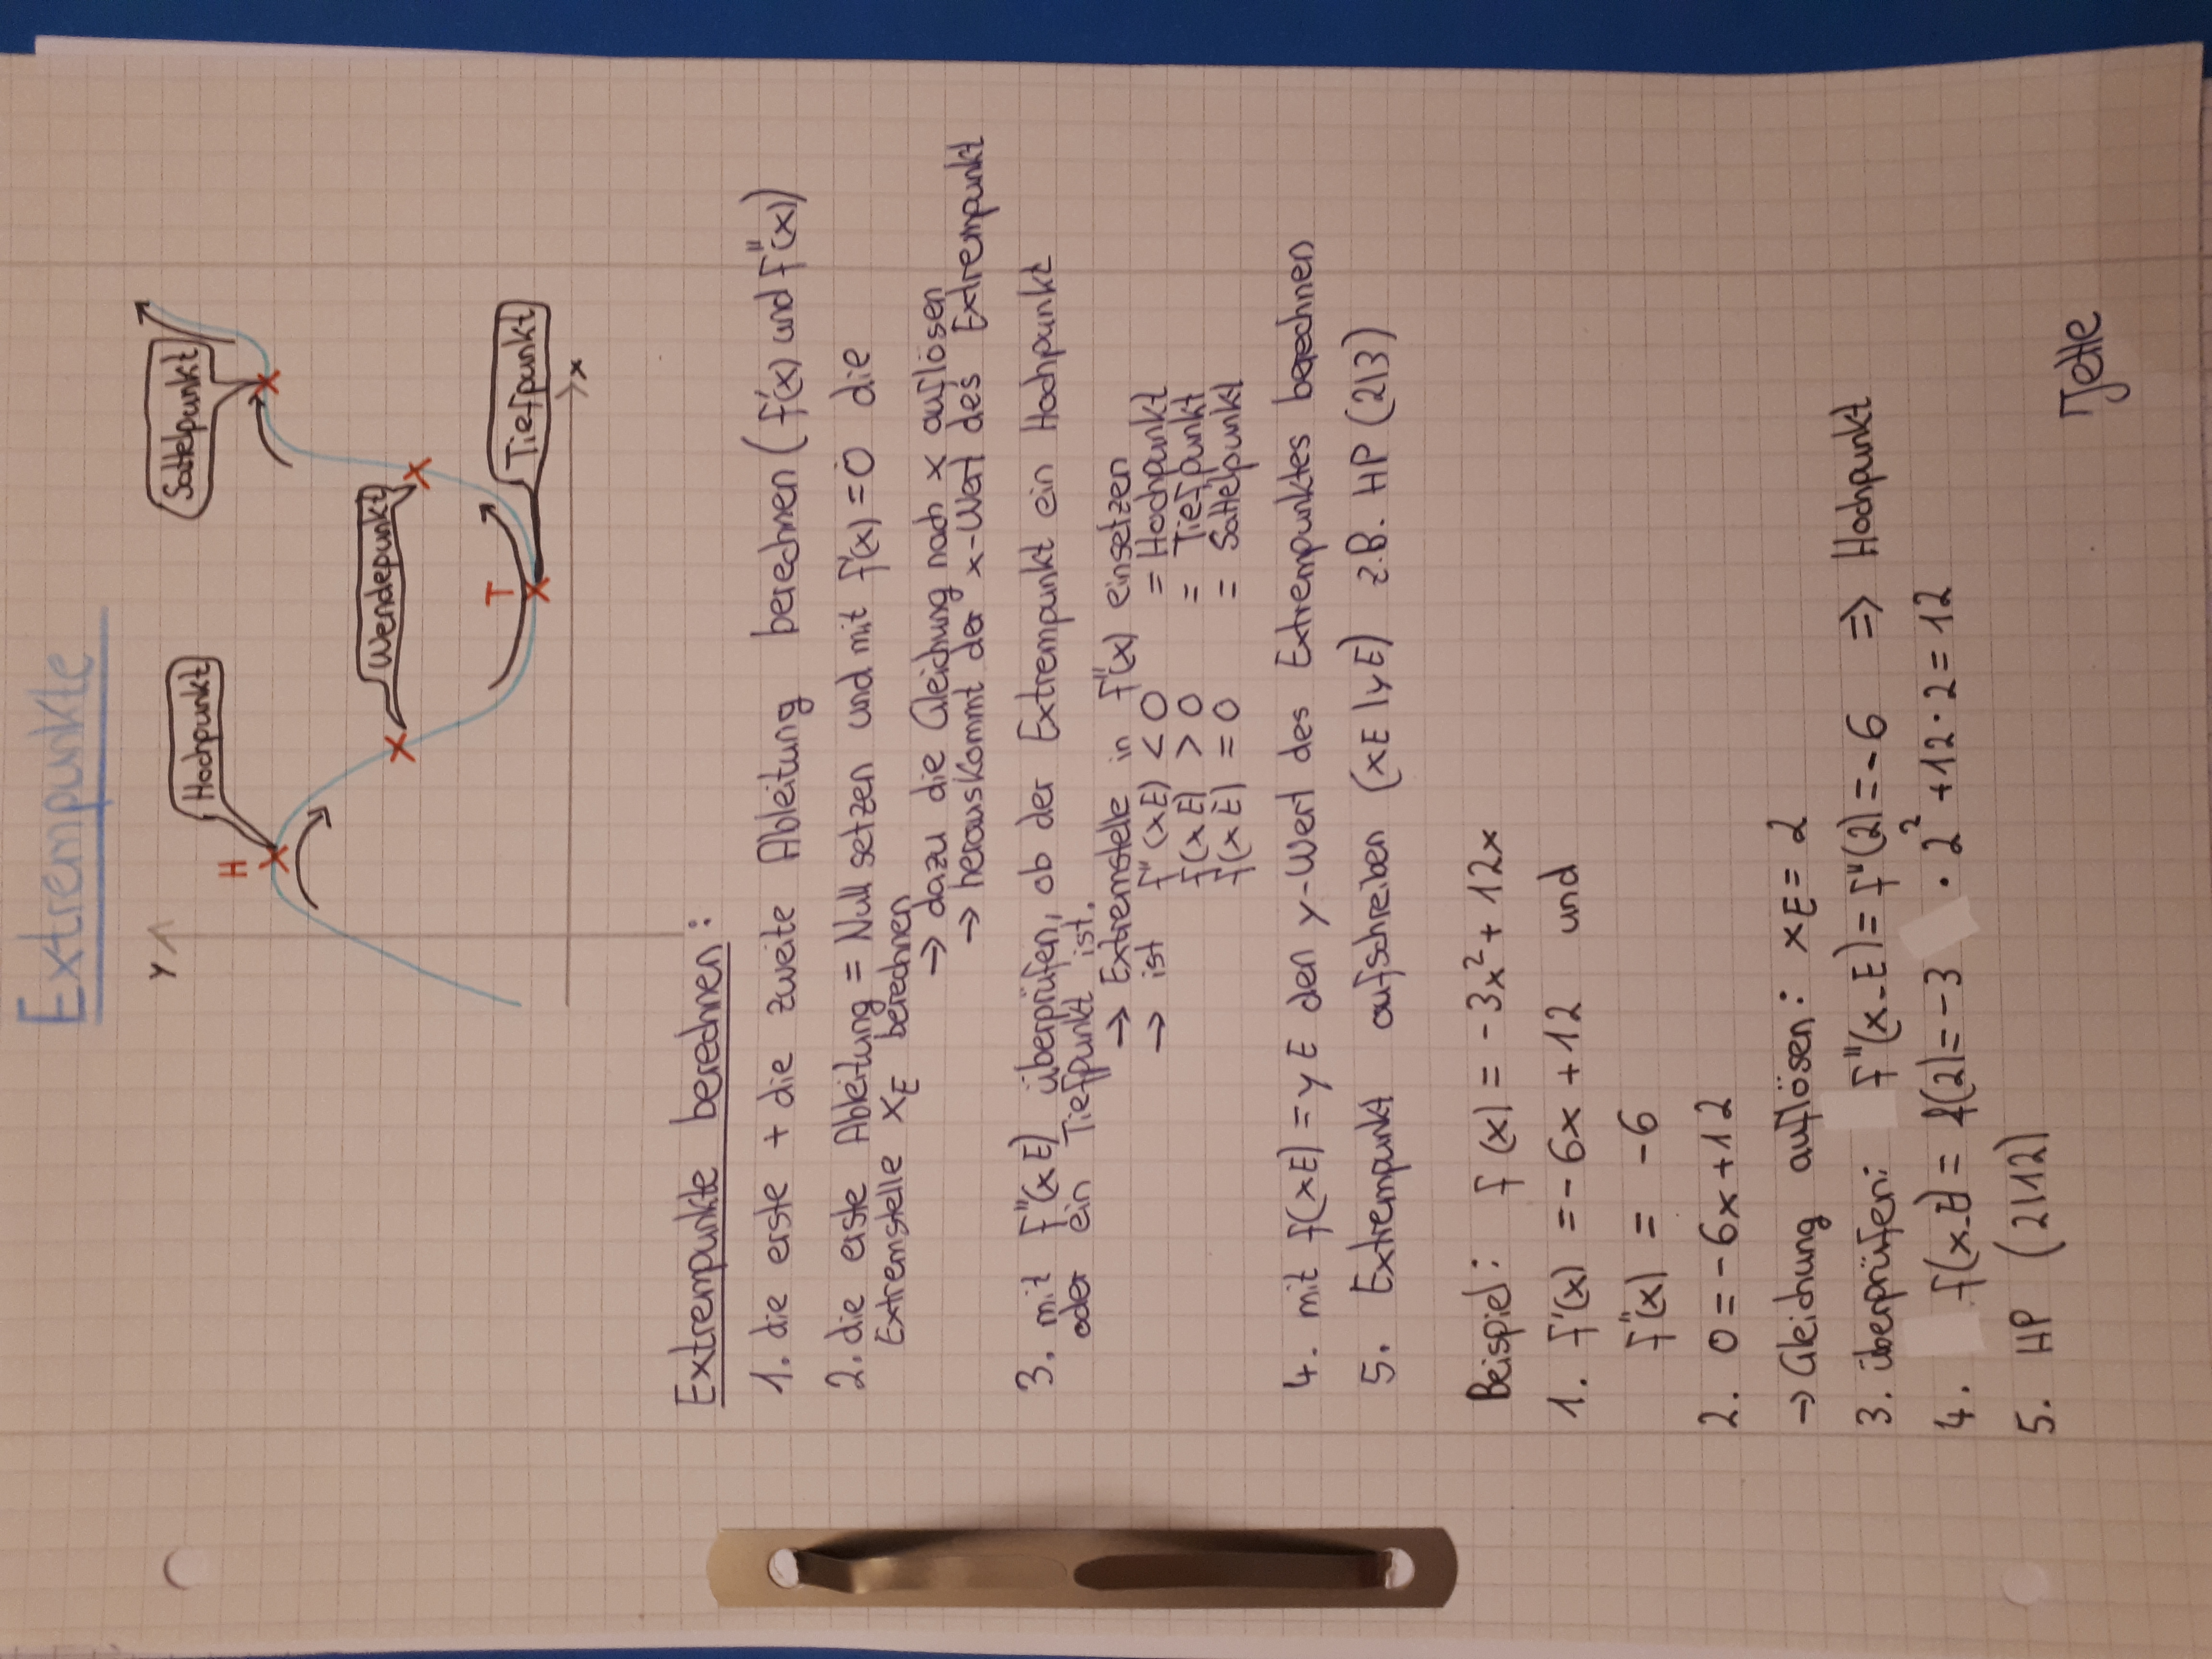 Extrempunkte
y
H
Hochpunkt
Wendepunkt
Sattelpunkt
T
Tiefpunkt
x
Extrempunkte berechnen:
1. die erste + die zweite Ableitung berechnen (f'(x) und f''(x))
2. die erste Ableitung = Null setzen und mit f'(x) = 0 die
Extremstelle xE berechnen
→ dazu die Gleichung nach x auflösen
→ herauskommt der x-Wert des Extrempunkt
3. mit f''(xE) überprüfen, ob der Extrempunkt ein Hochpunkt
oder ein Tiefpunkt ist.
→ Extremstelle in f''(x) einsetzen
→ ist f''(xE) < 0 = Hochpunkt
f(xE) > 0 = Tiefpunkt
f(xE) = 0 = Sattelpunkt
4. mit f(xE) = yE den y-Wert des Extrempunktes berechnen
5. Extrempunkt aufschreiben (xE|yE) z.B. HP (2|3)
Beispiel: f(x) = -3x² + 12x
1. f'(x) = -6x + 12 und
f''(x) = -6
2. 0 = -6x + 12
→ Gleichung auflösen: xE = 2
3. überprüfen: f''(x_E) = f''(2) = -6 ⇒ Hochpunkt
4. f(x_E) = f(2) = -3 · 2² + 12 · 2 = 12
5. HP (2|12)
Jette